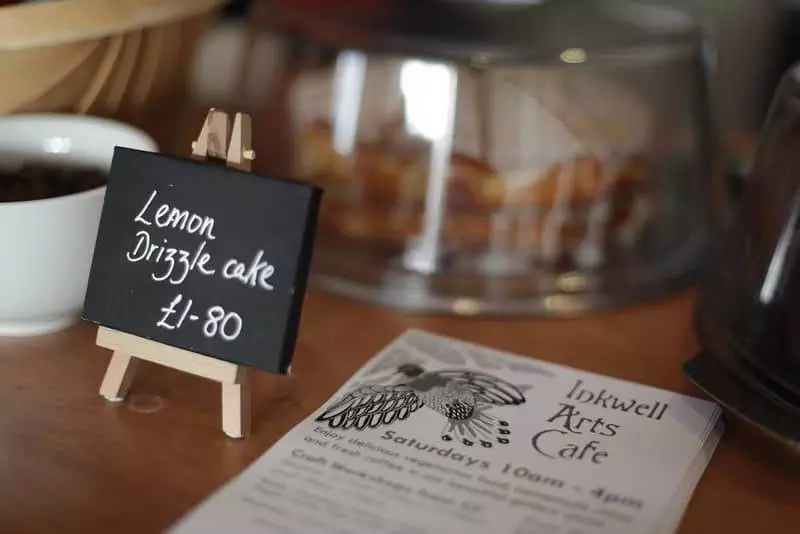 Lemon
Drizzle cake
£1-80
Inkwell
Arts
Cafe
Saturdays 10am - 4pm
Enjoy delicious vegetarian food,
and fresh coffee in our
Craft Workshops from